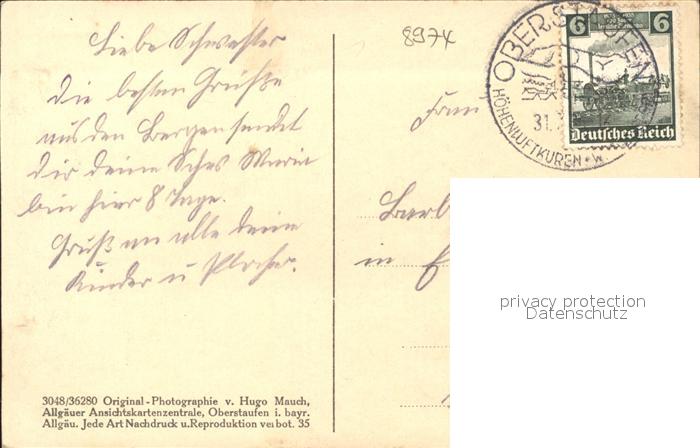 Liebe Schwester
die besten Grüße
aus den Bergen sendet
dir deine Schws Maria
bin hier 8 Tage.
Gruß an alle deine
Kinder u
3048/36280 Original-Photographie v. Hugo Mauch,
Allgäuer Ansichtskartenzentrale, Oberstaufen i. bayr.
Allgäu. Jede Art Nachdruck u. Reproduktion verbot. 35
8974
OBERSTAUFEN
HÖHENLUFTKUREN • W.
31.
6 6
Deutsches Reich
Frau
Barb
in
privacy protection
Datenschutz